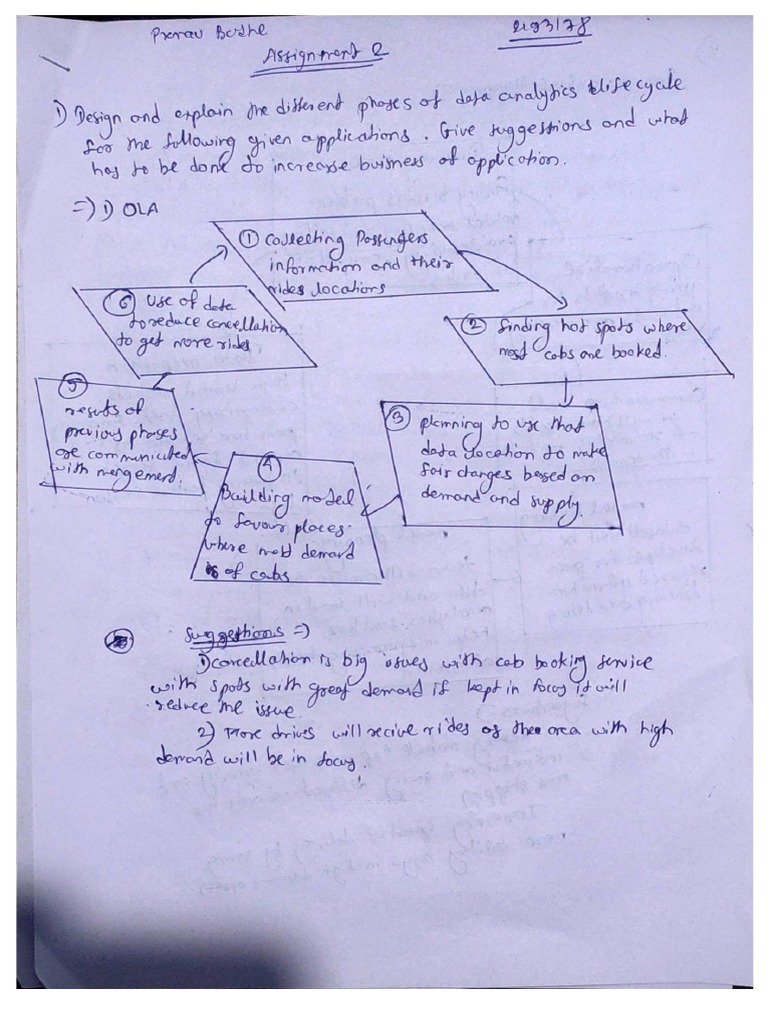 Pranav Borhe
2193178
Assignment 2
1) Design and explain the different phases of data analytics lifecycle
for the following given applications. Give suggestions and what
has to be done to increase buisness of application.
=) 1) OLA
① Collecting Passengers
information and their
rides locations
② finding hot spots where
most cabs are booked.
③ planning to use that
data location to make
fair charges based on
demand and supply.
④
Building model
to favour places
where most demand
is of cabs
⑤
results of
previous phases
are communicated
with mangement.
⑥ Use of data
to reduce cancellation
to get more rides
Suggestions =)
1) cancellation is big issues with cab booking service
with spots with great demand if kept in focus it will
reduce the issue.
2) More drives will recive rides as the area with high
demand will be in focus.